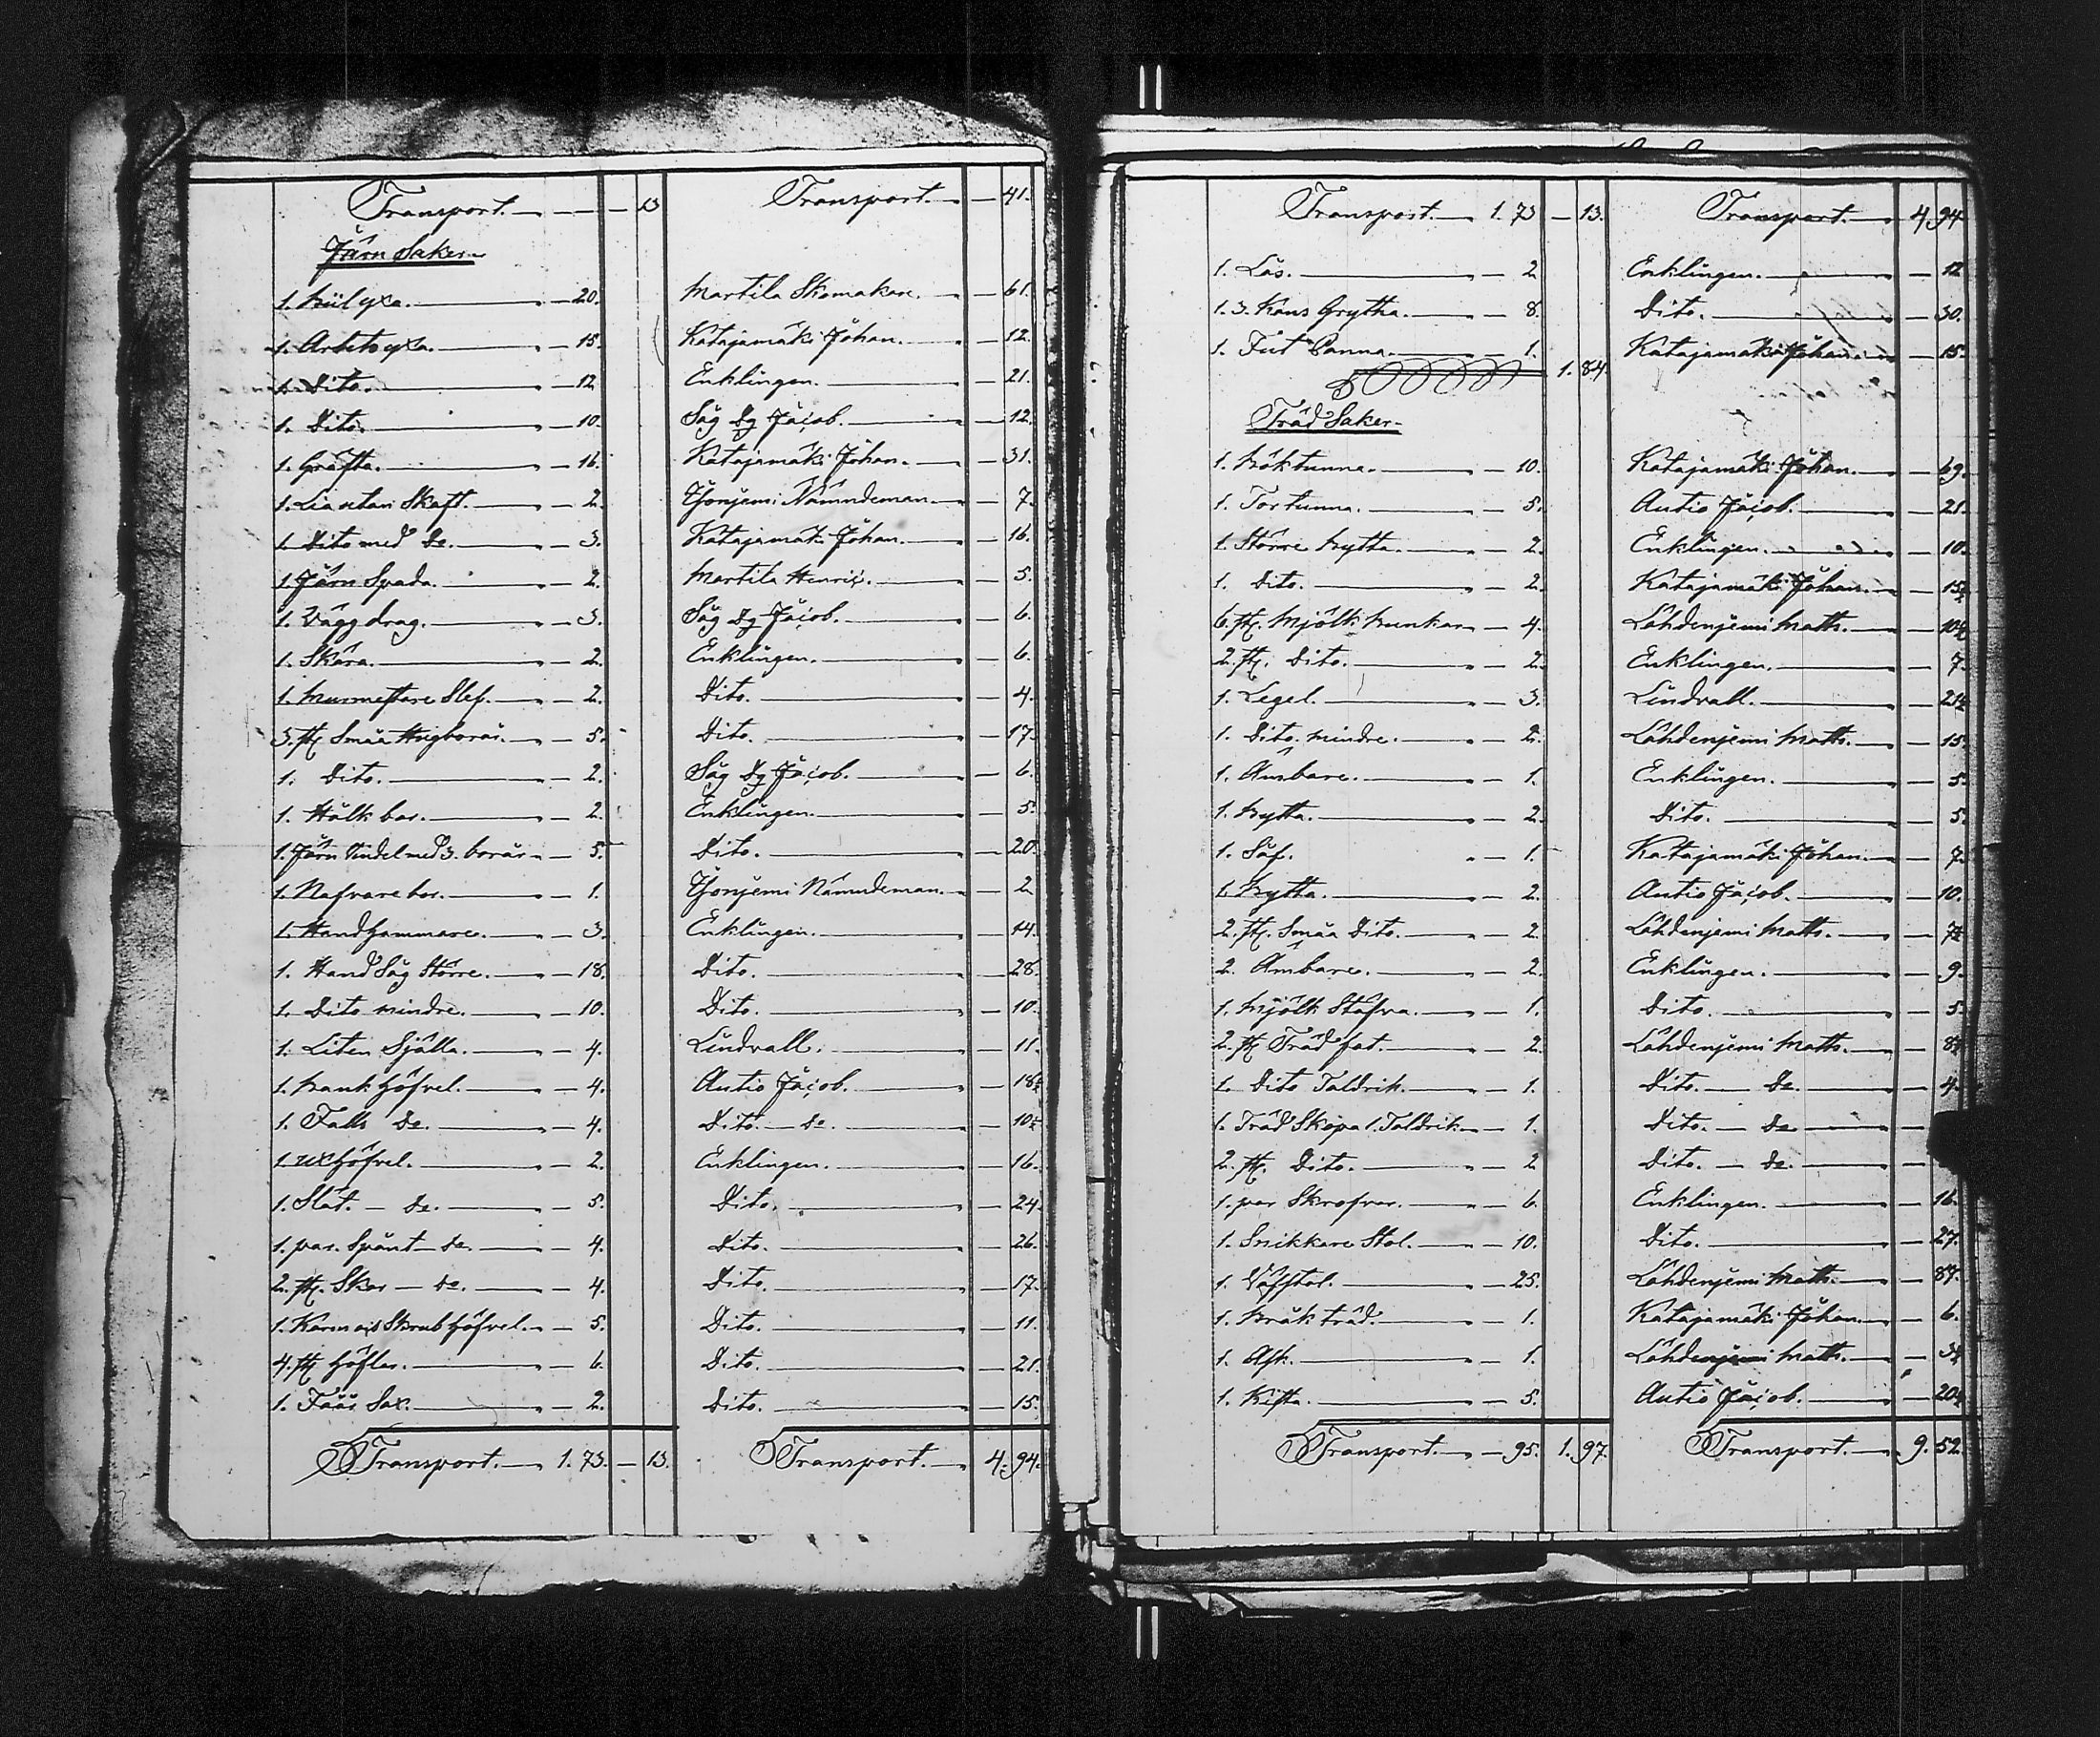 Transport. — — 13 Transport. — 41.
Järn Saker.
1. Bilyxa. — 20. Martila Skomakare. — 61.
1. Arbetsyxa. — 15. Katajamäki Johan. — 12.
1. Dito. — 12 Enklingen. — 21.
1. Dito. — 10. Säg Dg Jacob. — 12.
1. Gräfta. — 16. Katajamäki Johan. — 31.
1. Lia utan Skaft. — 2. Nämndeman. — 7.
1. Dito med Do. — 3. Katajamäki Johan. — 16.
1. Järn Spada. — 2. Martila Henric. — 5.
1. Väggdrag. — 3. Säg Dg Jacob. — 6.
1. Skära. — 2. Enklingen. — 6.
1. Murmestare Slef. — 2. Dito. — 4.
3. st. Småa borar. — 5. Dito. — 17.
1. Dito. — 2. Säg Dg Jacob. — 6.
1. Hålk bor. — 2. Enklingen. — 5.
1. Järn Vindel med 3. borar — 5. Dito. — 20.
1. Nafvare bor. — 1. Nämndeman. — 2.
1. Handhammare. — 3. Enklingen. — 14.
1. Hand Såg Större. — 18. Dito. — 28.
1. Dito mindre. — 10. Dito. — 10.
1. Liten Själla. — 4. Lindvall. — 11.
1. Bankhöfvel. — 4. Autio Jacob. — 18½
1. Falls Do. — 4. Dito. — Do — 10½
1. höfvel. — 2. Enklingen. — 16.
1. Slät. — Do. — 5. Dito. — 24.
1. par. Spånt — Do. — 4. Dito. — 26.
2. st. Skar — Do. — 4. Dito. — 17.
1. Karm ois Skrubhöfvel. — 5. Dito. — 11.
4. st höflar. — 6. Dito. — 21.
1. Fåår Sax. — 2. Dito. — 15.
Transport. — 1. 73. — 13. Transport. — 4. 94.
Transport. — 1. 73 — 13. Transport. — 4. 94
1. Lås. — 2. Enklingen. — 12
1. 3. Kans Grytha. — 8. Dito. — 30.
1. Fut Panna. — 1. Katajamäki Johan. — 15.
1. 84
Träd Saker.
1. Böktunna. — 10. Katajamäki Johan. — 69.
1. Tortunna. — 5. Autio Jacob. — 21.
1. Större bytta. — 2. Enklingen. — 10.
1. Dito. — 2. Katajamäki Johan. — 15½
6. st. Mjölk bunkar — 4. Lähdenjemi Matts. — 10½
2. st. Dito. — 2. Enklingen. — 7.
1. Legel. — 3. Lindvall. — 21½
1. Dito. mindre. — 2. Lähdenjemi Matts. — 15.
1. Ämbare. — 1. Enklingen. — 5.
1. bytta. — 2. Dito. — 5.
1. Såf. — 1. Katajamäki Johan. — 7.
1. bytta. — 2. Autio Jacob. — 10.
2. st. Småa Dito. — 2. Lähdenjemi Matts. — 7½
2. Ämbare. — 2. Enklingen. — 9.
1. Mjölk Stäfva. — 1. Dito. — 5.
2. st Träd fat. — 2. Lähdenjemi Matts. — 8½
1. Dito Taldrik. — 1. Dito. — Do. — 4.
1. Träd Skopa 1. Taldrik — 1. Dito. — Do —
2. st. Dito. — 2 Dito. — Do. —
1. par Skrofvar. — 6. Enklingen. — 16.
1. Snikkare Stol. — 10. Dito. — 27.
1. Väfstol. — 25. Lähdenjemi Matts. — 87.
1. Bråk träd. — 1. Katajamäki Johan. — 6.
1. Ask. — 1. Lähdenjemi Matts. — 3½
1. Kista. — 5. Autio Jacob. — 20½
Transport. — 95. 1. 97. Transport. — 9. 52.